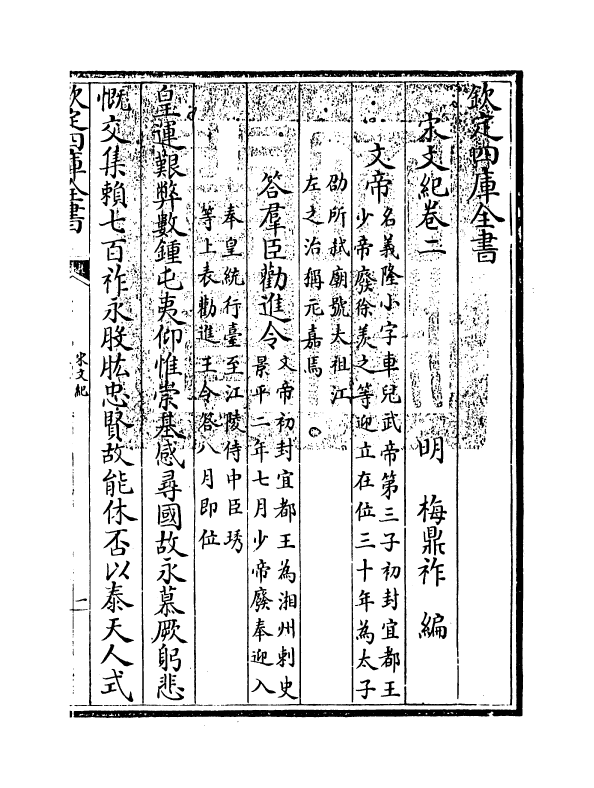 欽定四庫全書
宋文紀卷二
明　梅鼎祚　編
文帝
名義隆小字車兒武帝第三子初封宜都王
少帝廢徐羨之等迎立在位三十年為太子
劭所弑廟號太祖江
左之治稱元嘉焉
答羣臣勸進令
文帝初封宜都王為湘州刺史
景平二年七月少帝廢奉迎入
奉皇統行臺至江陵侍中臣琇
等上表勸進王令答八月即位
皇運艱弊數鍾屯夷仰惟崇基感尋國故永慕厥躬悲
慨交集賴七百祚永股肱忠賢故能休否以泰天人式
欽定四庫全書
宋文紀
一